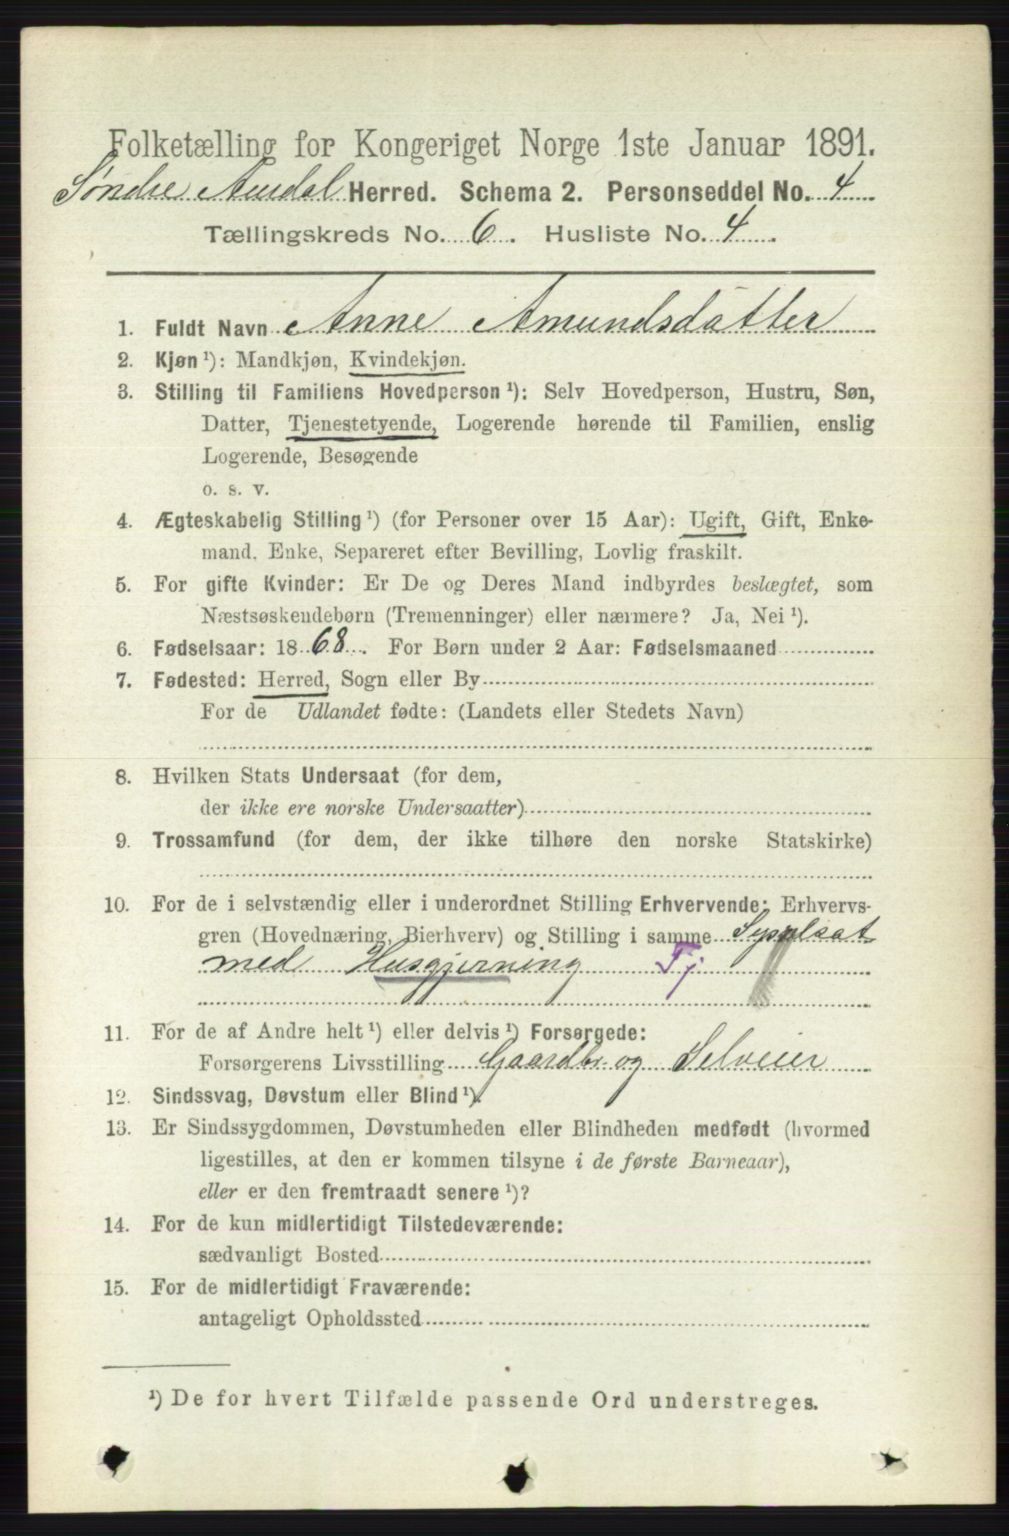 Folketælling for Kongeriget Norge 1ste Januar 1891.
Søndre Aurdal Herred. Schema 2. Personseddel No. 4
Tællingskreds No. 6. Husliste No. 4.
1. Fuldt Navn Anne Amundsdatter
2. Kjøn ¹): Mandkjøn, Kvindekjøn.
3. Stilling til Familiens Hovedperson ¹): Selv Hovedperson, Hustru, Søn,
Datter, Tjenestetyende, Logerende hørende til Familien, enslig
Logerende, Besøgende
o. s. v.
4. Ægteskabelig Stilling ¹) (for Personer over 15 Aar): Ugift, Gift, Enke-
mand, Enke, Separeret efter Bevilling, Lovlig fraskilt.
5. For gifte Kvinder: Er De og Deres Mand indbyrdes beslægtet, som
Næstsøskendebørn (Tremenninger) eller nærmere? Ja, Nei ¹).
6. Fødselsaar: 1868. For Børn under 2 Aar: Fødselsmaaned
7. Fødested: Herred, Sogn eller By
For de Udlandet fødte: (Landets eller Stedets Navn)
8. Hvilken Stats Undersaat (for dem,
der ikke ere norske Undersaatter)
9. Trossamfund (for dem, der ikke tilhøre den norske Statskirke)
10. For de i selvstændig eller i underordnet Stilling Erhvervende: Erhvervs-
gren (Hovednæring, Bierhverv) og Stilling i samme Sysselsat
med Husgjerning Tj
11. For de af Andre helt ¹) eller delvis ¹) Forsørgede:
Forsørgerens Livsstilling Gaardbr. og Selveier
12. Sindssvag, Døvstum eller Blind ¹).
13. Er Sindssygdommen, Døvstumheden eller Blindheden medfødt (hvormed
ligestilles, at den er kommen tilsyne i de første Barneaar),
eller er den fremtraadt senere ¹)?
14. For de kun midlertidigt Tilstedeværende:
sædvanligt Bosted
15. For de midlertidigt Fraværende:
antageligt Opholdssted
¹) De for hvert Tilfælde passende Ord understreges.